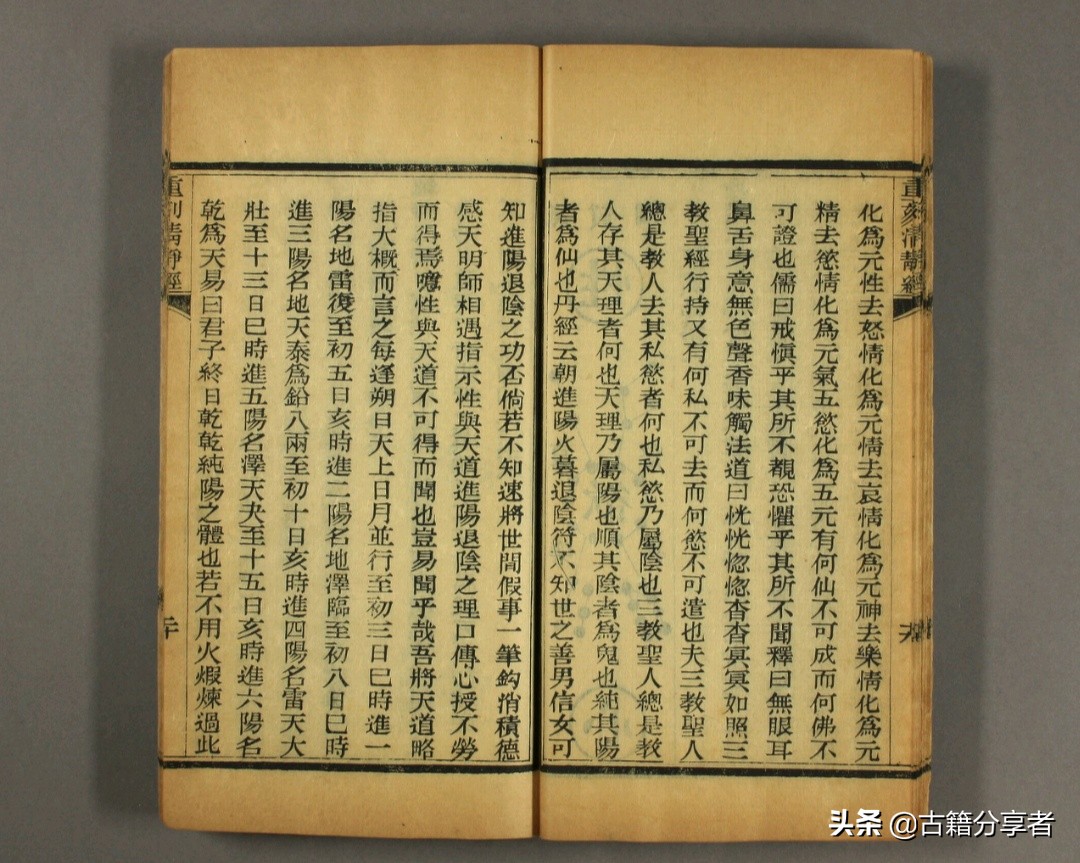 重刻清靜經
化為元性去怒情化為元情去哀情化為元神去樂情化為元
精去慾情化為元氣五慾化為五元有何仙不可成而何佛不
可證也儒曰戒慎乎其所不覩恐懼乎其所不聞釋曰無眼耳
鼻舌身意無色聲香味觸法道曰恍恍惚惚杳杳冥冥如照三
教聖經行持又有何私不可去而何慾不可遣也夫三教聖人
總是教人去其私慾者何也私慾乃屬陰也三教聖人總是教
人存其天理者何也天理乃屬陽也順其陰者為鬼也純其陽
者為仙也丹經云朝進陽火暮退陰符不知世之善男信女可
知進陽退陰之功否倘若不知速將世間假事一筆鈎消積德
感天明師相遇指示性與天道進陽退陰之理口傳心授不勞
而得焉噫性與天道不可得而聞也豈易聞乎哉吾將天道略
指大概而言之每逢朔日天上日月並行至初三日巳時進一
陽名地雷復至初五日亥時進二陽名地澤臨至初八日巳時
進三陽名地天泰為鉛八兩至初十日亥時進四陽名雷天大
壯至十三日巳時進五陽名澤天夬至十五日亥時進六陽名
乾為天易曰君子終日乾乾純陽之體也若不用火煆煉過此
重刊清靜經
二十
头条 @古籍分享者